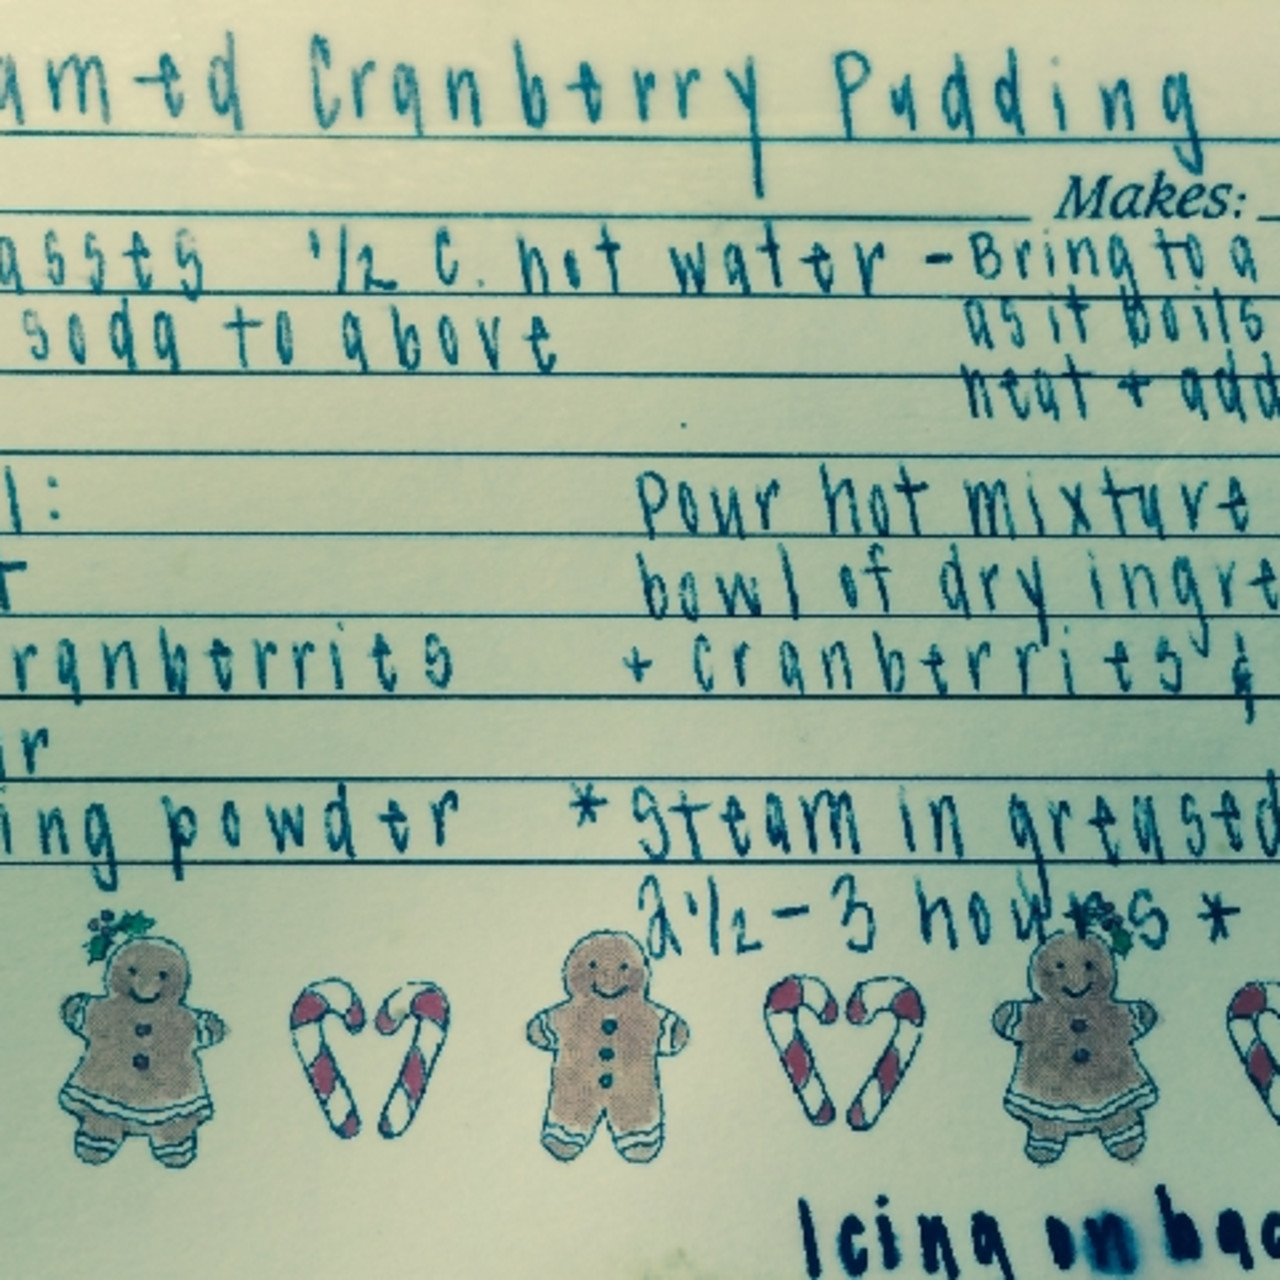 amed Cranberry Pudding
Makes:
asses 1/2 C. hot water - Bring to a
soda to above as it boils
heat + add
l: Pour hot mixture
bowl of dry ingre
ranberries + cranberries &
ar
ing powder * Steam in greased
2 1/2 - 3 hours *
Icing on bac